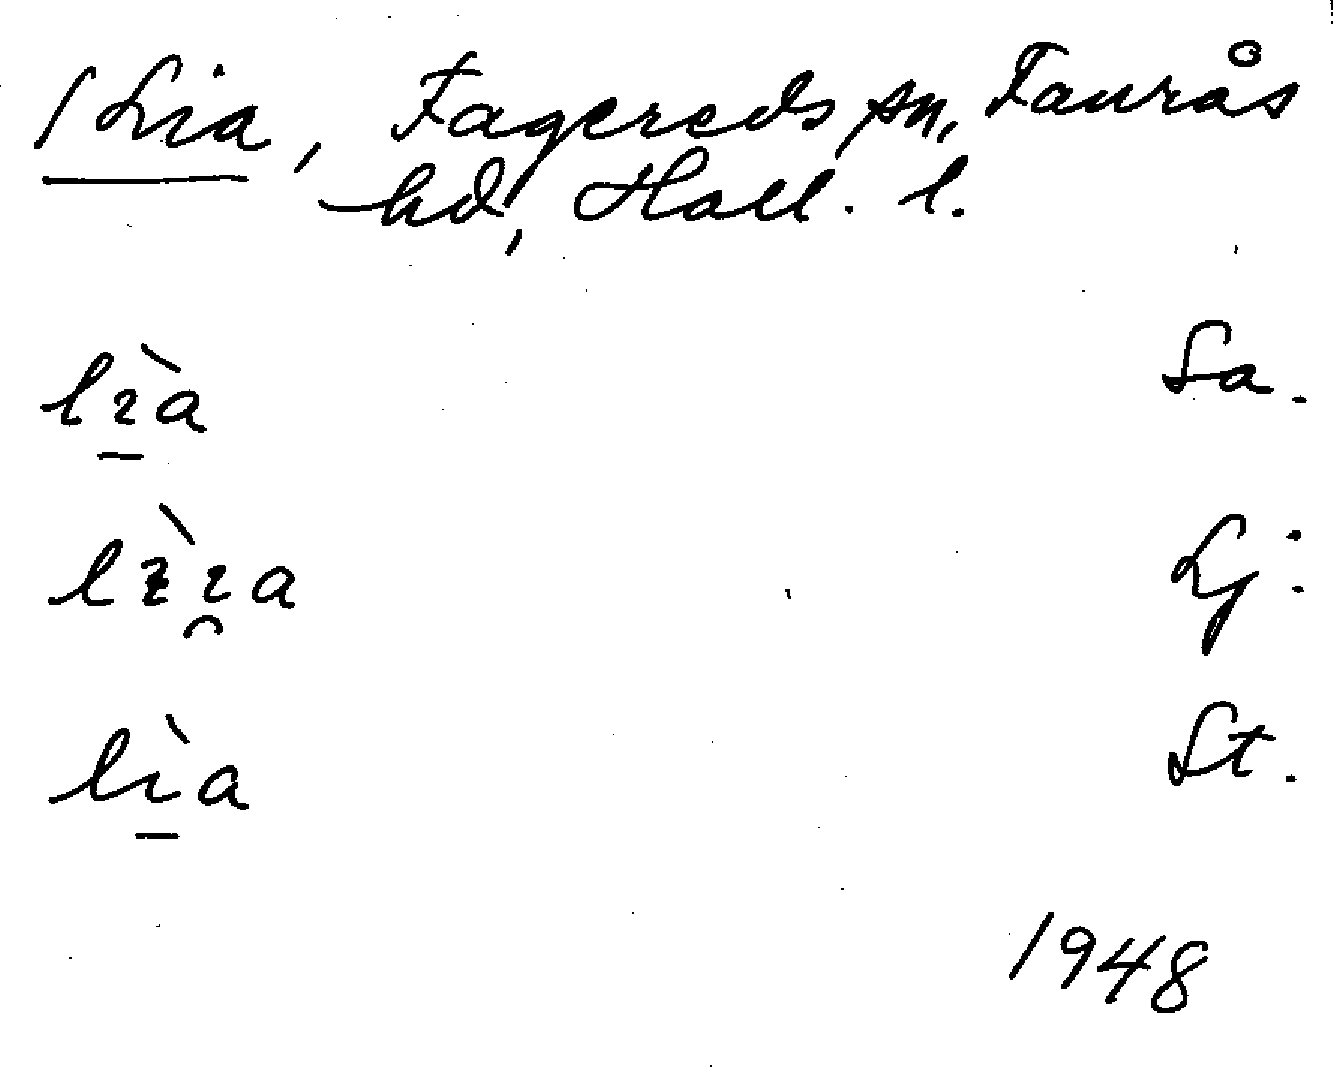 1 Lia, Fagereds sn, Faurås
hd, Hall. l.
lɩ̠̀a Sa.
lɩ̀ɩ̯a Lj:
lɩ̠̀a St.
1948